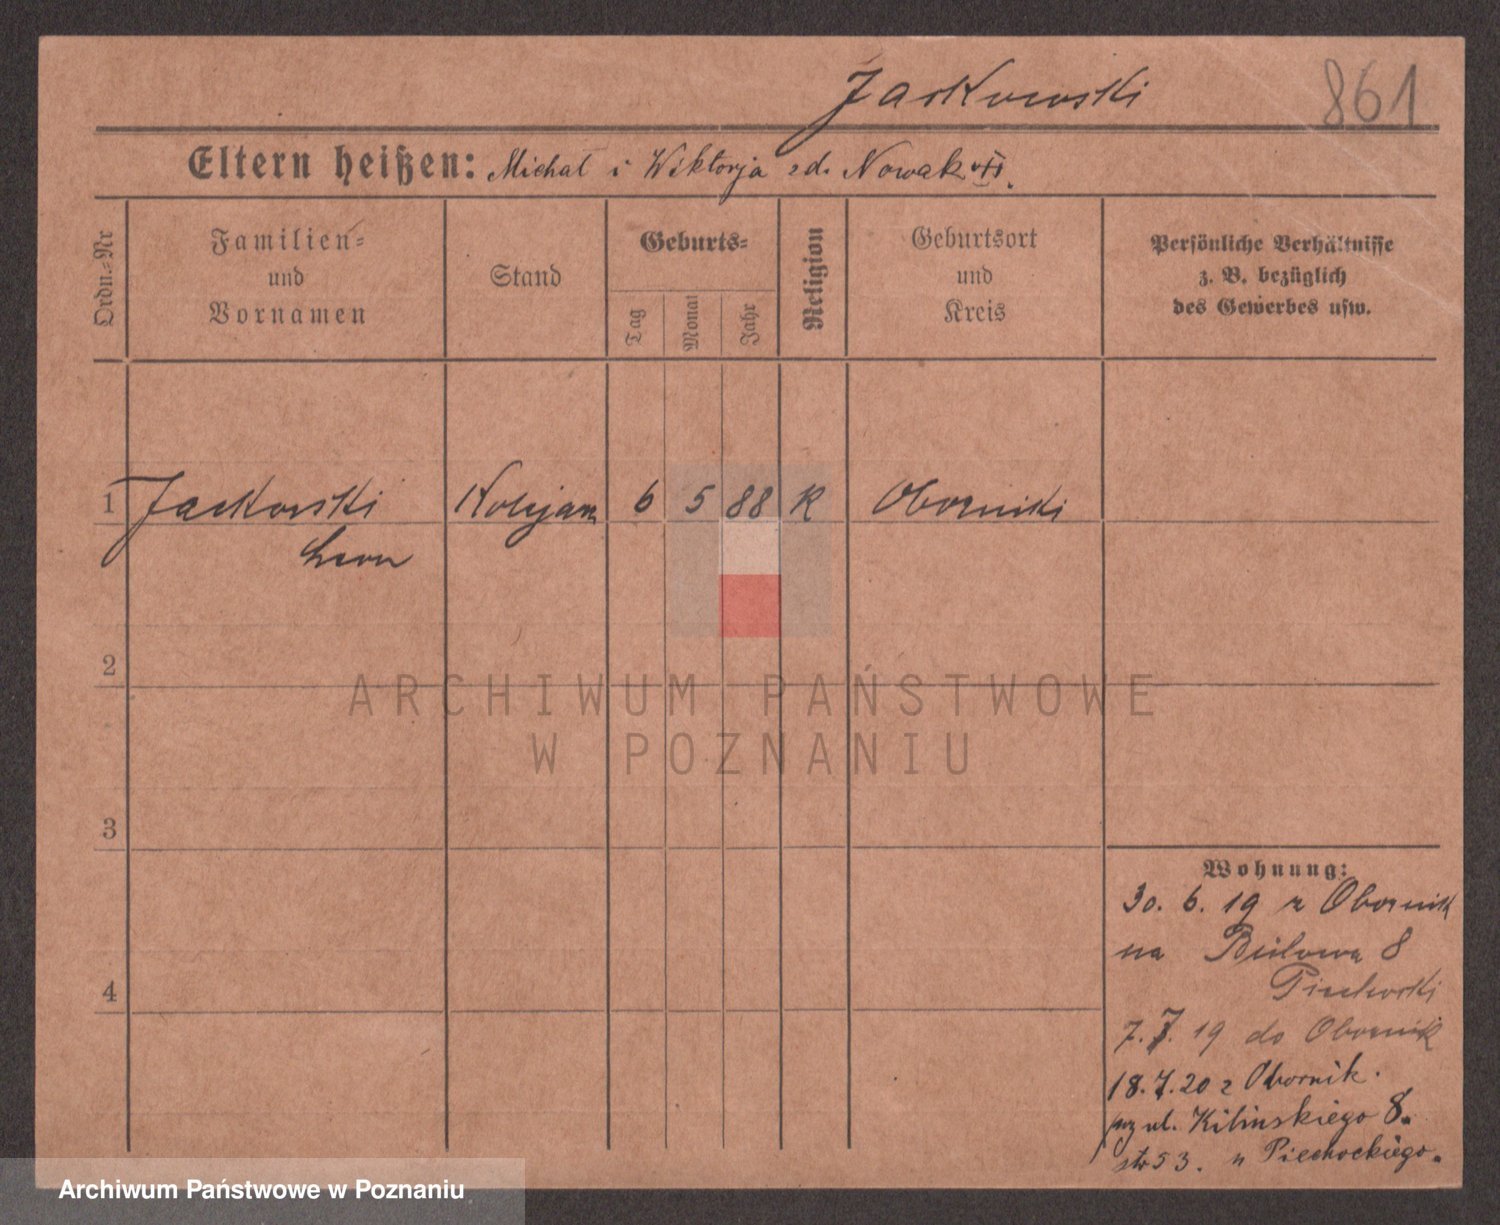 Jackowski 861
Eltern heißen: Michał i Wiktorja zd. Nowak
Ordn.-Nr
Familien-
und
Vornamen
Stand
Geburts-
Tag
Monat
Jahr
Religion
Geburtsort
und
Kreis
Persönliche Verhältnisse
z. B. bezüglich
des Gewerbes usw.
1 Jackowski 6 5 88 K Oborniki
Leon
2
3
4
ARCHIWUM PAŃSTWOWE
W POZNANIU
Wohnung:
30. 6. 19 z Obornik
na Bülowa 8
Piechocki
7. 7. 19 do Obornik
18. 7. 20 z Obornik.
przy ul. Kilinskiego 8.
str 53. u Piechockiego.
Archiwum Państwowe w Poznaniu